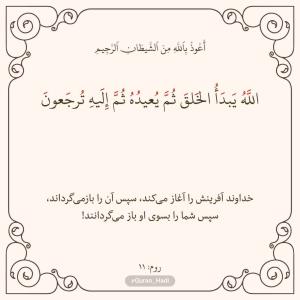 أَعُوذُ بِاللَّهِ مِنَ الشَّيطَانِ الرَّجِيمِ
اللَّهُ يَبدَأُ الخَلقَ ثُمَّ يُعيدُهُ ثُمَّ إِلَيهِ تُرجَعونَ
خداوند آفرینش را آغاز می‌کند، سپس آن را بازمی‌گرداند،
سپس شما را بسوی او باز می‌گردانند!
روم: ۱۱
@Quran_Hadi